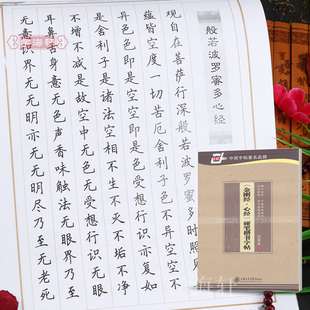 般若波罗蜜多心经
观自在菩萨行深般若波罗蜜多时照
蕴皆空度一切苦厄舍利子色不异空空不
异色色即是空空即是色受想行识亦复如
是舍利子是诸法空相不生不灭不垢不净
不增不减是故空中无色无受想行识无
耳鼻舌身意无色声香味触法无眼界乃至
无意识界无无明亦无无明尽乃至无老死
中国字帖著名品牌
《金刚经·心经》硬笔楷书字帖